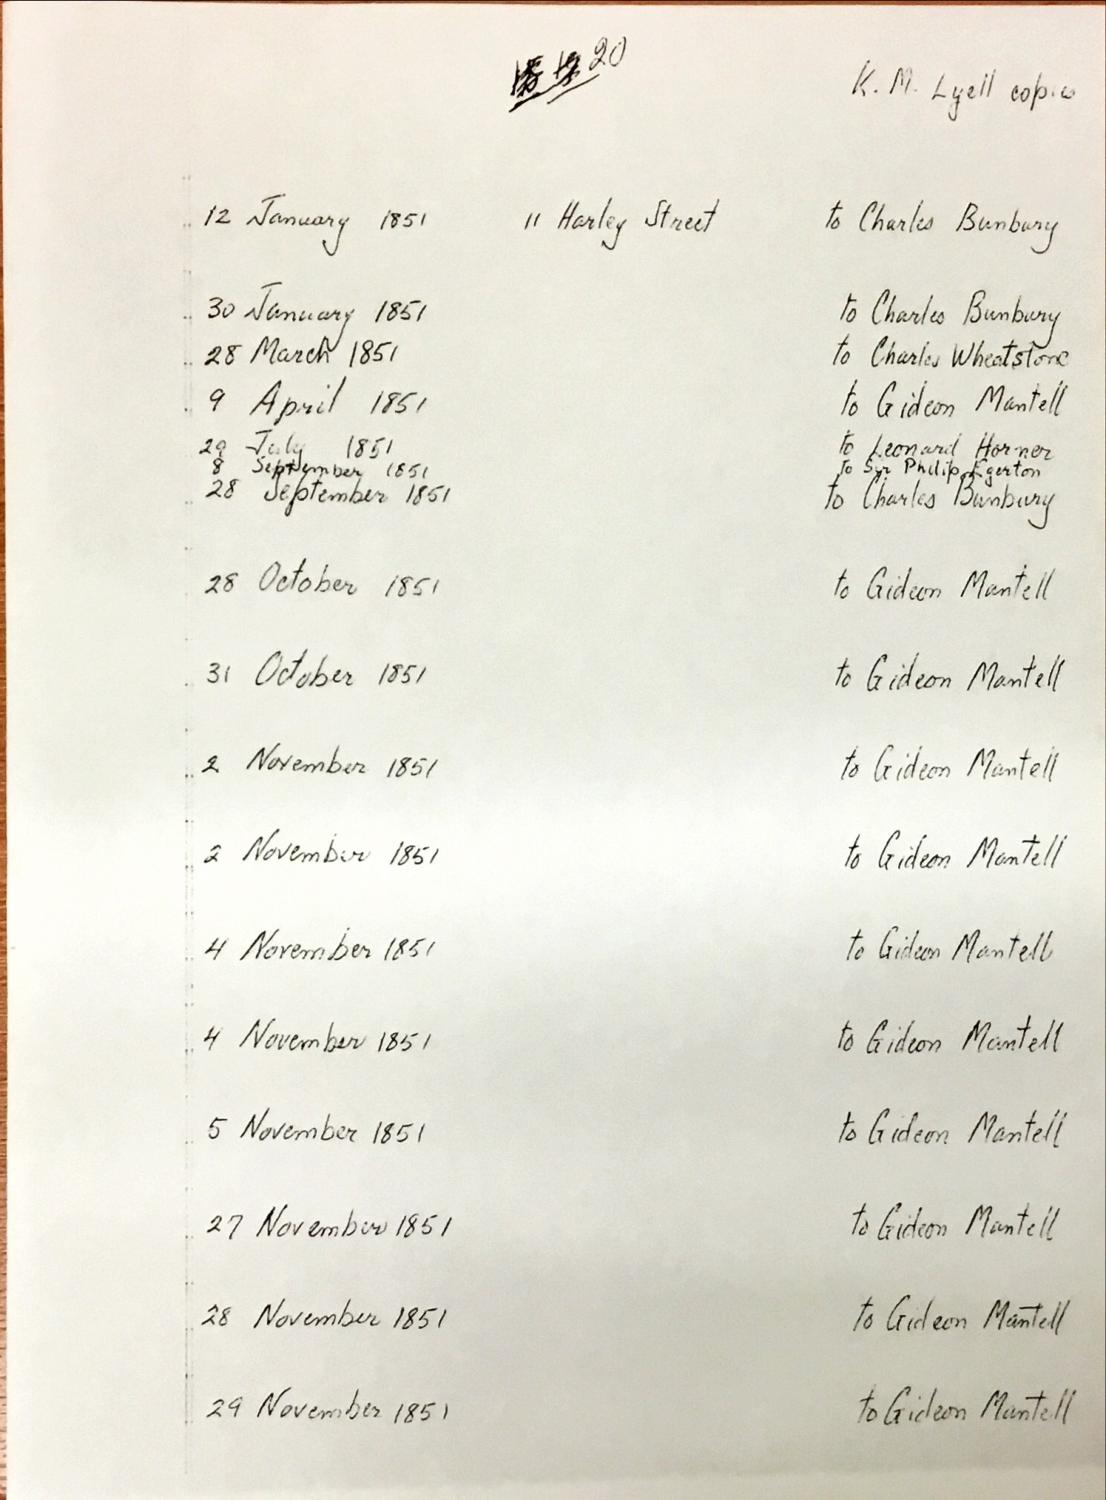 20
K. M. Lyell copies
12 January 1851 11 Harley Street to Charles Bunbury
30 January 1851 to Charles Bunbury
28 March 1851 to Charles Wheatstone
9 April 1851 to Gideon Mantell
29 July 1851 to Leonard Horner
8 September 1851 to Sir Philip Egerton
28 September 1851 to Charles Bunbury
28 October 1851 to Gideon Mantell
31 October 1851 to Gideon Mantell
2 November 1851 to Gideon Mantell
2 November 1851 to Gideon Mantell
4 November 1851 to Gideon Mantell
4 November 1851 to Gideon Mantell
5 November 1851 to Gideon Mantell
27 November 1851 to Gideon Mantell
28 November 1851 to Gideon Mantell
29 November 1851 to Gideon Mantell